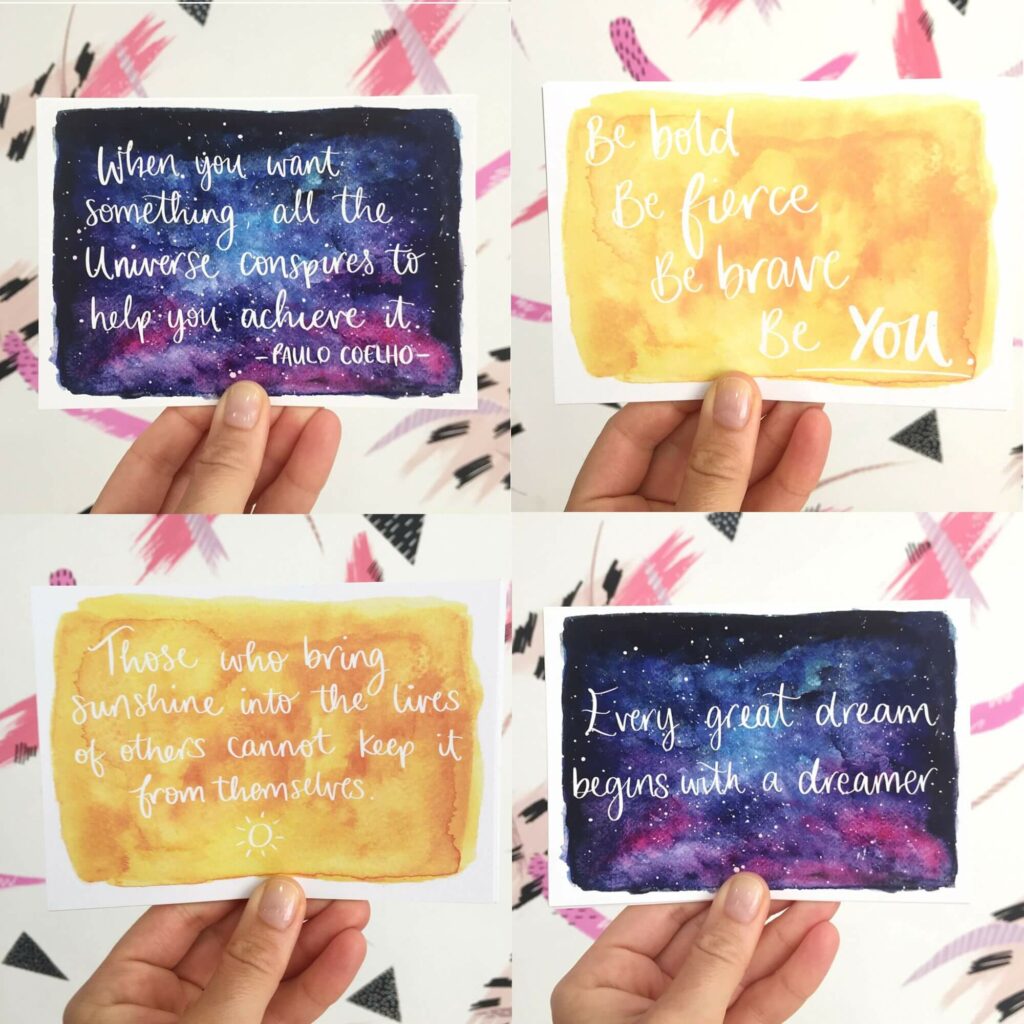 When you want
something, all the
Universe conspires to
help you achieve it.
-PAULO COELHO-
Be bold
Be fierce
Be brave
Be YOU.
Those who bring
sunshine into the lives
of others cannot keep it
from themselves.
Every great dream
begins with a dreamer.